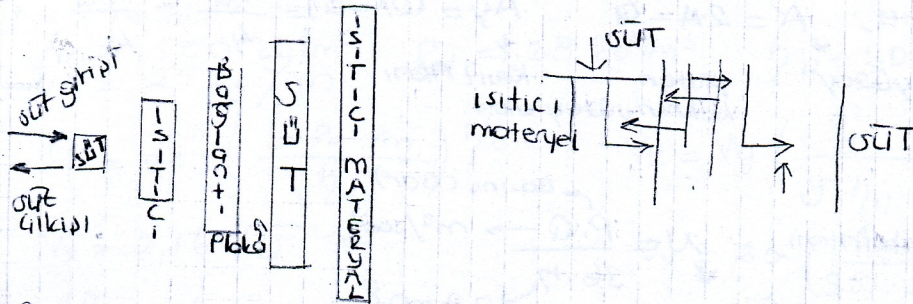 süt girişi
SÜT
süt
çıkışı
ISITICI
Plaka
SÜT
ISITICI MATERYAL
SÜT
ısıtıcı
materyel
SÜT